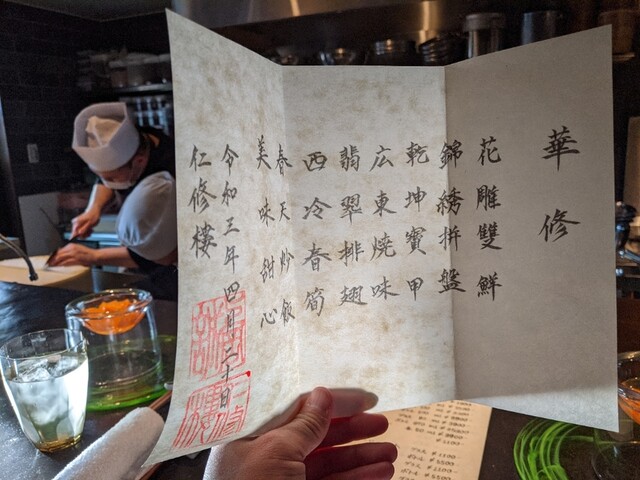 華修
花雕雙鮮
錦綉拼盤
乾坤寶甲
広東燒味
翡翠排翅
西冷春筍
春天炒飯
美味甜心
令和三年四月二十日
仁修樓